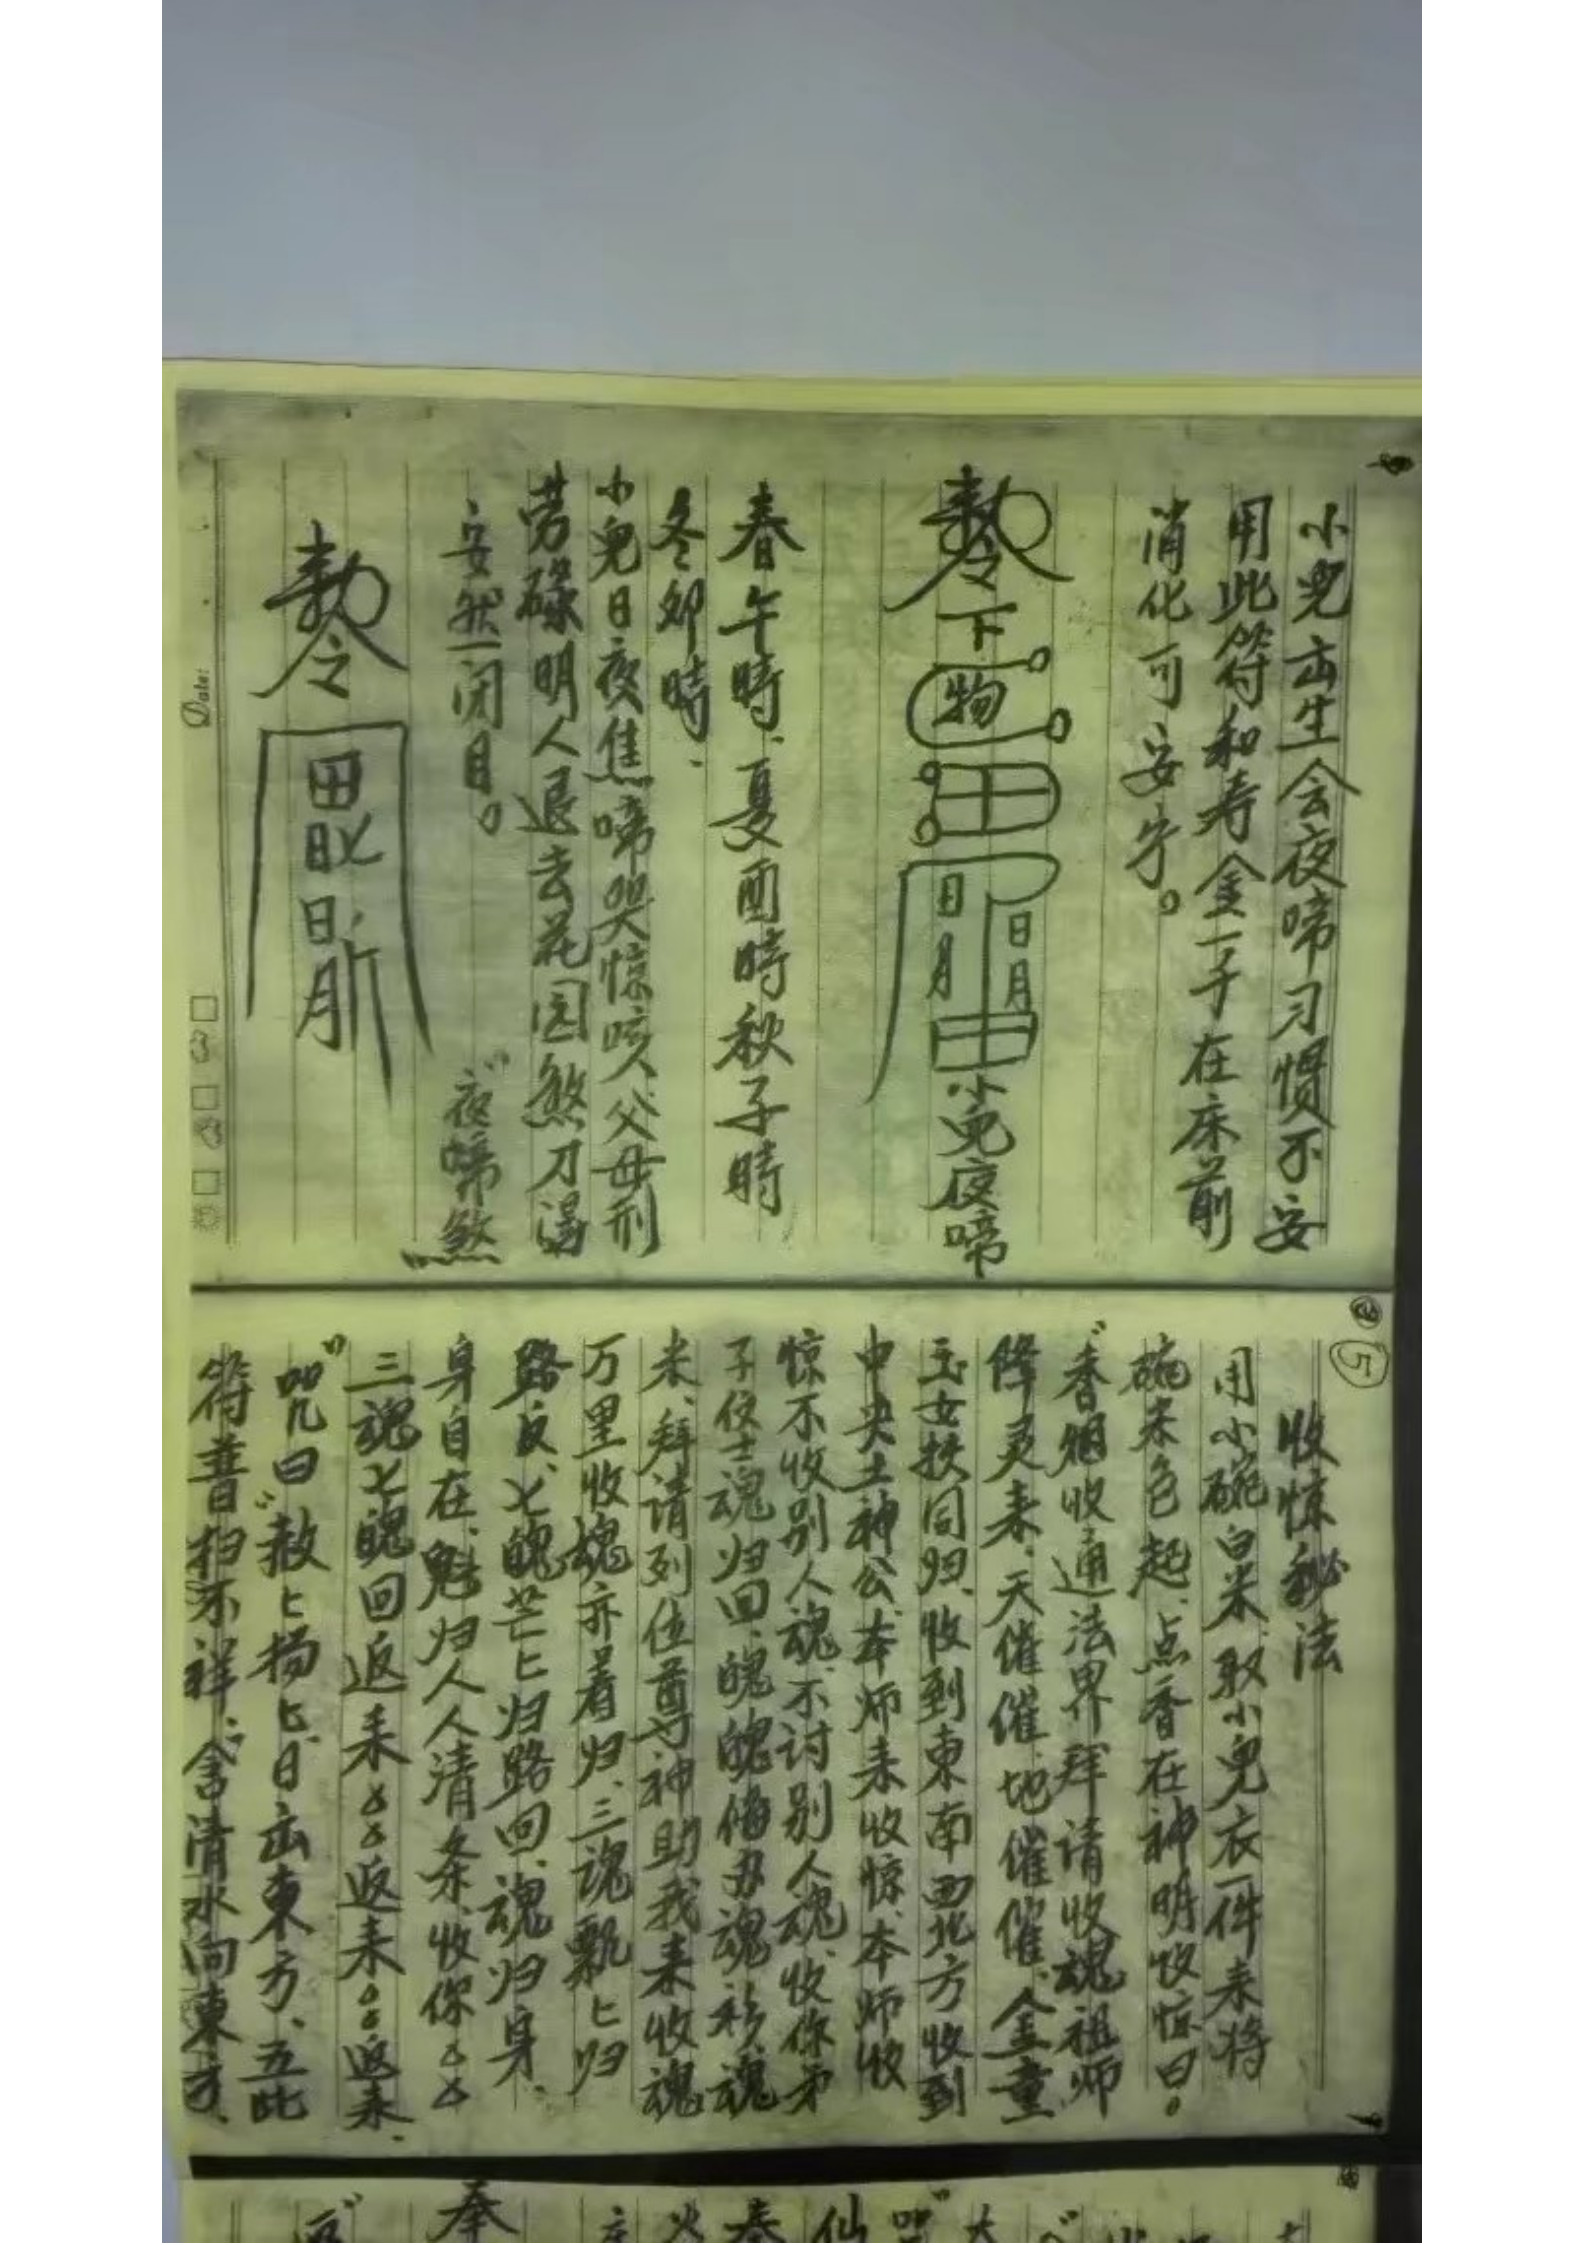 小兒出生会夜啼习惯不安
用此符和寿金一子在床前
消化可安宁。
勅令下物田日月日月田小兒夜啼
春午時、夏酉時秋子時
冬卯時、
小兒日夜焦啼哭惊咳父母刑
劳碌明人退去花园煞刀湯
安然一闭目。
夜啼煞
勅令
Date:
收惊秘法
用小碗白米、取小兒衣一件来将
碗米包起、点香在神明收惊曰。
"香烟收通法界拜请收魂祖师
降灵来、天催催、地催催、金童
玉女扶同归、收到東南西北方收到
中央土神公、本师来收惊、本师收
惊不收别人魂、不讨别人魂、收你弟
子信士魂归回、魄魄
米、拜请列位尊神助我来收魂
万里收魂亦着归、三魂飘匕归
路反、七魄芒匕归路回、魂归身、
身自在、魁归人人清条条、收你
三魂七魄回返来返来返来、
咒曰"赦匕扬匕、日出東方、五此
符普扫不祥、"含清水向東方、